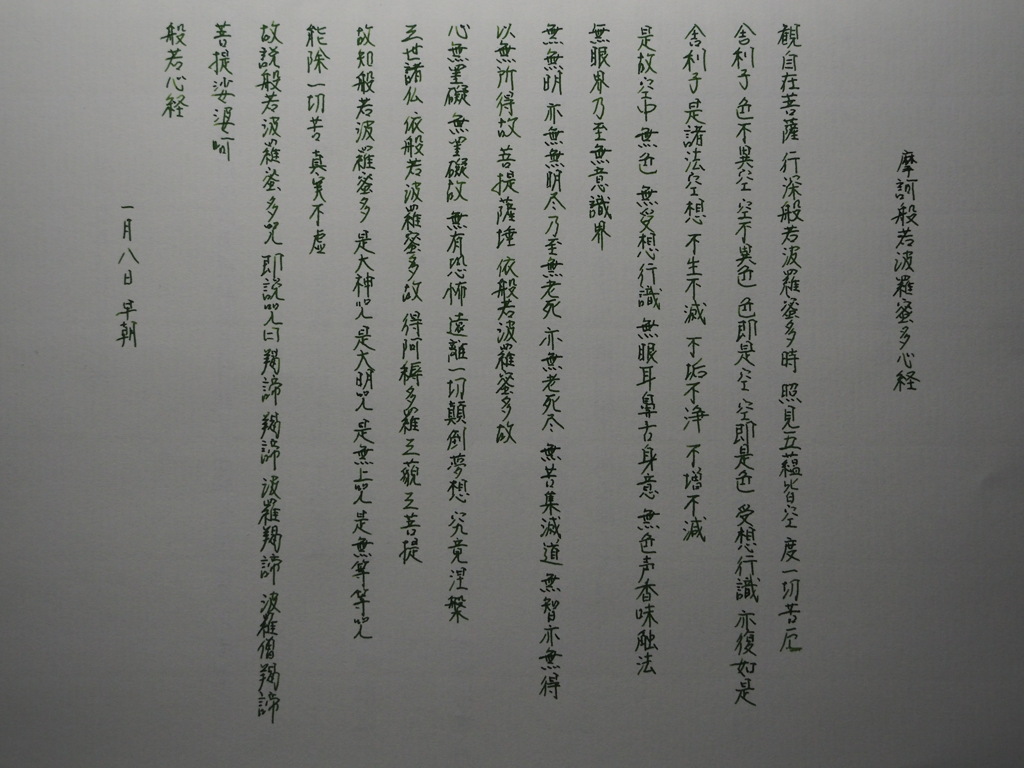 摩訶般若波羅蜜多心経
観自在菩薩 行深般若波羅蜜多時 照見五蘊皆空 度一切苦厄
舎利子 色不異空 空不異色 色即是空 空即是色 受想行識 亦復如是
舎利子 是諸法空想 不生不滅 不垢不浄 不増不減
是故空中 無色 無受想行識 無眼耳鼻舌身意 無色声香味触法
無眼界乃至無意識界
無無明 亦無無明尽乃至無老死 亦無老死尽 無苦集滅道 無智亦無得
以無所得故 菩提薩埵 依般若波羅蜜多故
心無罣礙 無罣礙故 無有恐怖 遠離一切顛倒夢想 究竟涅槃
三世諸仏 依般若波羅蜜多故 得阿耨多羅三藐三菩提
故知般若波羅蜜多 是大神咒 是大明咒 是無上咒 是無等等咒
能除一切苦 真実不虚
故説般若波羅蜜多咒 即説咒曰 羯諦 羯諦 波羅羯諦 波羅僧羯諦
菩提娑婆訶
般若心経
一月八日 早朝